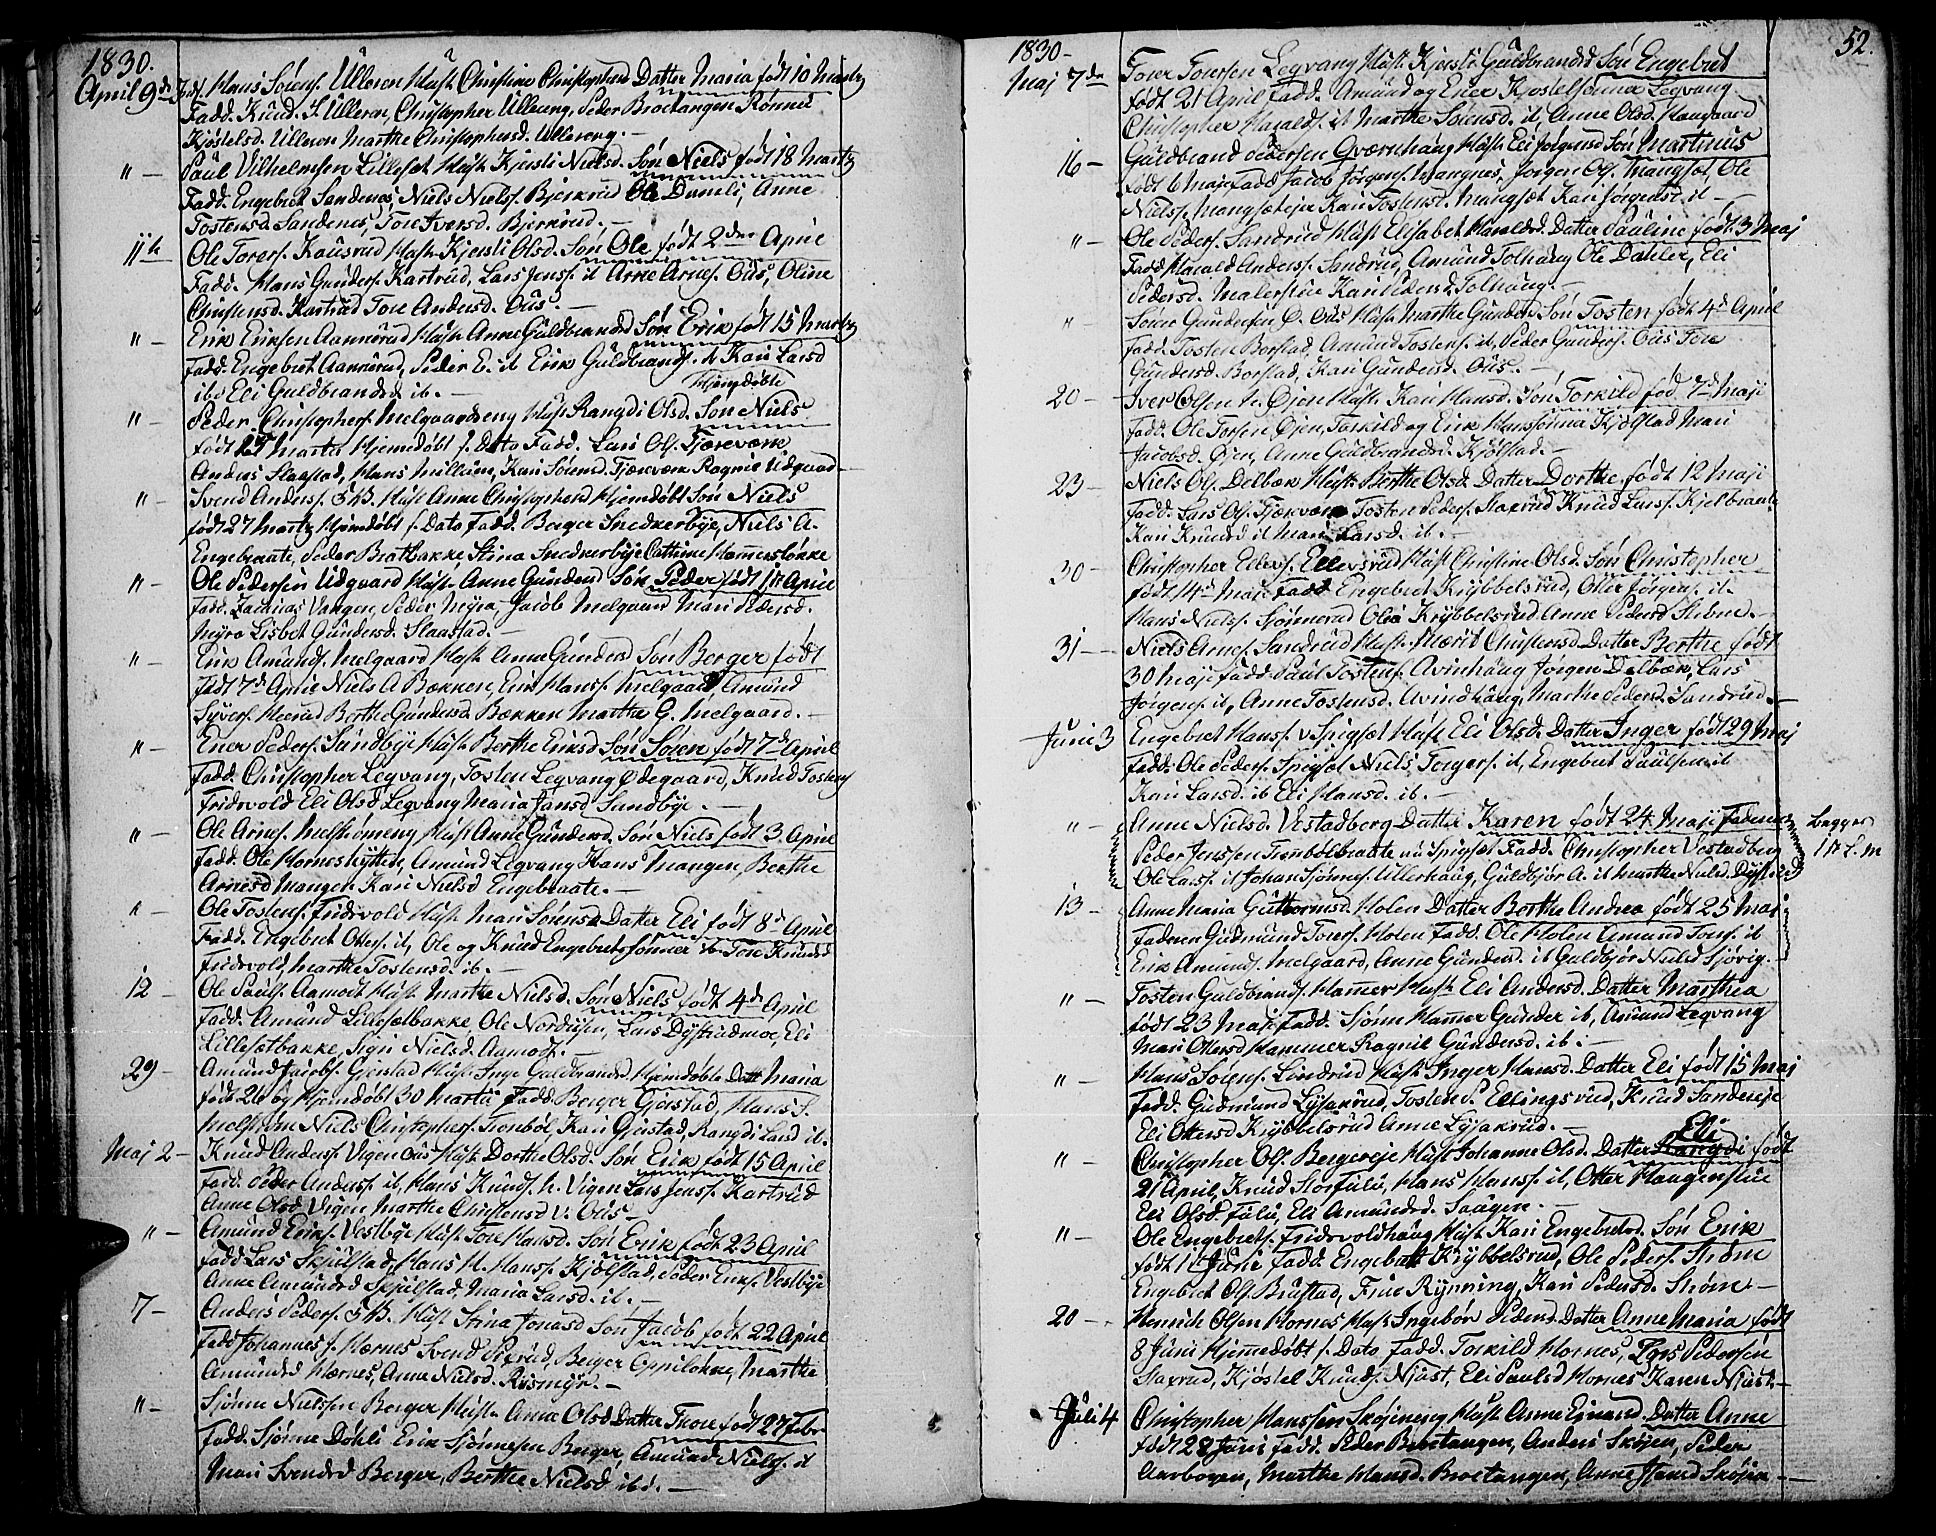 1830.
April 9de Hans Sørens. Ulleren Hust. Christine Christophersd Datter Maria født 10 Martz
Fadd. Knud S. Ulleren, Christopher Ullereng, Peder Broetangen Rønnei
Kjøstelsd. Ulleren Marthe Christophersd. Ullereng. —
" — Paul Vilhelmsen Lillesæt Hust. Kjersti Nielsd. Søn Niels født 18 Martz
Fadd. Engebret Sandenes, Niels Nielss. Bjerkrud Ole Damli, Anne
Tostensd. Sandenes, Tore Iversd. Bjerkrud. —
11te Ole Torers. Kausrud Hust. Kjersti Olsd. Søn Ole født 2den April
Fadd. Hans Gunders. Kartrud, Lars Jenss. it Arne Arnes. Ous, Oline
Christensd. Kartrud Tore Andersd. Ous. —
" — Erik Eriksen Aannerud Hust. Anne Guldbrandsd Søn Erik født 15 Martz
Fadd. Engebret Aannerud, Peder E. it Erik Guldbrands. it Kari Larsd
ibd Eli Guldbrandsd ib. —
Hjemdøbte
" — Peder Christophers. Melgaardseng Hust. Rangdi Olsd. Søn Niels
født 27 Marts Hjemdøbt s. Dato Fadd. Lars Ols. Tjæreværk
Anders Slaastad, Hans Millum, Kari Sørensd. Tjærværk Ragnie Udgaard —
" — Svend Anders. S.B. Hust. Anne Christophersd Hjemdøbt Søn Niels
født 27 Martz Hjemdøbt s. Dato Fadd. Berger Snedkerbye, Niels A.
Engebraate, Peder Bratbakke Stina Snedkerbye Cathrine Hammerstøkke
" — Ole Pedersen Udgaard Hust. Anne Gundersd Søn Peder født 1st April
Fadd. Zacharias Vangen, Peder Myra, Jacob Melgaard Mari Pedersd.
Myra Lisbet Gundersd. Slaastad. —
" — Erik Amunds. Melgaard Hust. Anne Gundersd Søn Berger født
født 7de April Niels A Bækken, Erik Hanss. Melgaard Amund
Syvers. Neerud Berthe Gundersd. Bækken Marthe G. Melgaard. —
" — Ener Peders. Sundbye Hust. Berthe Eriksd Søn Søren født 7de April
Fadd. Christopher Legvang, Tosten Legvang Ødegaard, Knud Tostens
Fridsvold Eli Olsd Legvang Maria Jansd Sandbye. —
" — Ole Arnes. Melstrømeng Hust. Anne Gundersd. Søn Niels født 3. April
Fadd. Ole Horneshytten, Amund Legvang Hans Mangen, Berthe
Arnesd Mangen Kari Nielsd Engebraate. —
" — Ole Tostens. Fridsvold Hust. Mari Sørensd Datter Eli født 8de April
Fadd. Engebret Otters. it, Ole og Knud Engebretssønner ib Tore Knudsd
Fridsvold, Marthe Tostensd. ib. —
12 — Ole Pauls. Aamodt Hust. Marthe Nielsd. Søn Niels født 4de April
Fadd. Amund Lillesætbakke, Ole Norduen, Lars Dystrudmoe, Eli
Lillesætbakke, Sigri Nielsd. Aamodt. —
29 — Amund Jacobs. Gjerstad Hust. Inge Guldbrandsd. Hjemdøbte Datt Maria
født 26 og Hjemdøbt 30 Marts Fadd. Berger Gjerstad, Hans S.
Melstrøm Niels Christophers. Trønbøl, Kari Gjerstad, Rangdi Larsd it.
Maj 2 — Knud Anders. Vigen Ous Hust. Dorthe Olsd. Søn Erik født 15 April
Fadd. Peder Anders. it, Hans Knuds. N. Vigen Lars Jenss. Kartrud
Anne Olsd. Vigen Marthe Christensd V. Ous —
" — Amund Eriks. Vestbye Hust. Tore Hansd. Søn Erik født 23 April
Fadd Lars Skjulstad, Hans H. Hanss. Kjølstad, Peder Eriks. Vestbye
Anne Amundsd Skjulstad, Maria Larsd. ib. —
7 — Anders Peders. S.B. Hust. Stina Jonasd Søn Jacob født 22 April
Fadd Johannes J. Hærnes Svend Berger Oppistokke, Marthe
Amundsd Hærnes, Anne Nielsd. Riismyr. —
" — Sjønne Nielssen Berger Hust. Anne Olsd Datter Thore født 27 Febr
Fadd. Sjønne Døhli Erik Sjønnesen Berger, Amund Nielss. it
Mari Svendsd Berger, Berthe Nielsd ibd. —
52.
1830 —
Maj 7de Torer Torersen Legvang Hust. Kjersti Guldbrandsd Søn Engebret
født 21 April Fadd. Amund og Ener Kjøstelsønner Legvang
Christopher Haralds. it Marthe Sørensd. it, Anne Olsd. Haugaard
16 — Guldbrand Pedersen Qværnhaug Hust. Eli Jørgensd Søn Martinus
født 6 Maj Fadd Jacob Jørgens. Vangnes, Jørgen Ols. Mangsæt, Ole
Nielss. Mangsæteje Kari Tostensd. Mangsæt Kari Jørgensd. it —
" — Ole Peders. Sandrud Hust. Elisabet Haraldsd. Datter Pauline født 3 Maj
Fadd Harald Anderss. Sandrud, Amund Tolhaug Ole Dahler, Eli
Pedersd. Malerstue Kari Pedersd. Tolhaug. —
" — Søren Gundersen Ø. Ous Hust. Marthe Gundersd Søn Tosten født 4de April
Fadd. Tosten Borstad, Amund Tostens. it, Peder Gunders. Ous Tore
Gundersd. Borstad, Kari Gundersd. Ous. —
20 — Iver Olsen N. Øjen Hust. Kari Hansd. Søn Torkild fød. 7de Maji
Fadd. Ole Torsen Øjen, Torkild og Erik Hanssønner Kjølstad Mari
Jacobsd. Øjen, Anne Guldbrandsd. Kjølstad. —
23 — Niels Ols. Delbæk Hust. Berthe Olsd. Datter Dorthe født 12 Maji
Fadd. Lars Ols. Tjærværk Tosten Peders. Slaxrud Knud Larss. Kjelbraate
Kari Knudsd it Mari Larsd. ib. —
30 — Christopher Ellefs. Ellevsrud Hust. Christine Olsd. Søn Christopher
født 14de Maj Fadd Engebret Krybbelsrud, Otter Jørgens. it.
Hans Nielss. Sjønnerud Olia Krybbelsrud Anne Pedersd Stibne. —
31 — Niels Arnes. Sandrud Hust. Marit Christensd. Datter Berthe født
30 Maji Fadd. Paul Tostens. Avinhaug Jørgen Delbæk, Lars
Jørgens. it, Anne Tostensd. Avindhaug, Marthe Pedersd. Sandrud. —
Juni 3 Engebret Hanss. v Spigsæt Hust. Eli Olsd. Datter Inger født 29 Maj
Fadd. Ole Peders. Spigsæt Niels Torgers. it, Engebret Paulsen it
Kari Larsd. ib Eli Hansd. ib. —
" — Anne Nielsd. Vestadberg Datter Karen født 24. Maji Faderen
Begges
Peder Jenssen Trønbølbraate nu Spigsæt Fadd. Christopher Vestadberg
1ste L.m
Ole Larss. it Johan Sjønnes. Ullerhaug, Guldbjør A. it Marthe Nielsd. Dystrud
13 — Anne Maria Guttormsd. Holen Datter Berthe Andrea født 25 Maj
Faderen Gudmund Torers. Holen Fadd. Ole Holen Amund Tors. it
Erik Amunds. Melgaard, Anne Gundersd. it Guldbjør Nielsd Sjøvig. —
" — Tosten Guldbrands. Hammer Hust. Eli Andersd. Datter Marthea
født 23 Maji Fadd. Sjønn Hammer Gunder ib, Amund Legvang
Mari Ottersd Hammer Ragnil Gundersd. ib. —
" — Hans Sørens. Lindrud Hust. Inger Hansd. Datter Eli født 15 Maj
Fadd. Gudmund Lysakrud, Tosten P. Ellingsrud, Knud Sandereje
Eli Ottersd Krybbelsrud Anne Lysakrud. —
Eli
" — Christopher Ols. Bergereje Hust. Johanne Olsd. Datter Rangdi født
21 April, Knud Storfulu, Hans Hanss. it, Otter Haugenstue
Eli Olsd. Fulu, Eli Amundsd. Saagen. —
" — Ole Engebrets. Fridsvoldhaug Hust. Kari Engebretsd. Søn Erik
født 1st Juni Fadd. Engebret Krybbelsrud, Ole Peders. Strøm
Engebret Ols. Brustad, Frue Rynning, Kari Pedersd. Strøm —
20 — Henrich Olsen Hornes Hust. Ingebør Pedersd. Datter Anne Maria født
8 Juni Hjemmedøbt s. Dato Fadd. Torkild Hornes, Lars Pedersen
Slaxrud, Kjøstel Knuds. Njust, Eli Paulsd Hornes Karen Njust. —
Juli 4 Christopher Hanssen Skøjineng Hust. Anne Ejnarsd. Datter Anne
født 28 Juni Fadd. Peder Broetangen, Anders Skøjen, Peder
Aarbogen, Marthe Hansd. Broetangen, Anne Jansd Skøjen —